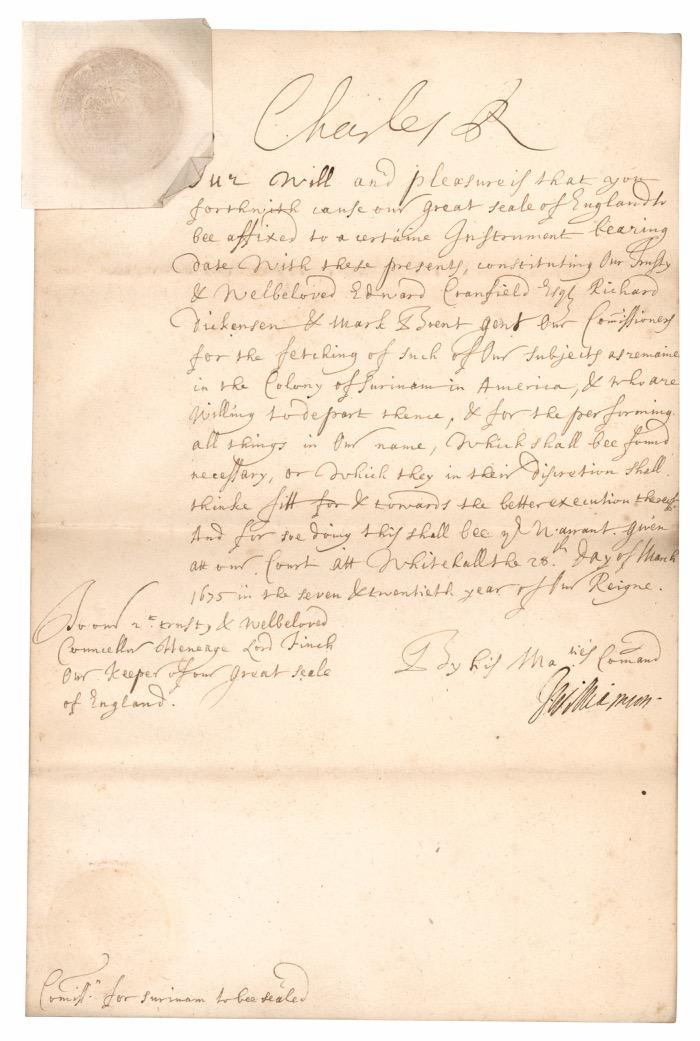 Charles R
Our Will and pleasure is that you
forthwith cause our great seale of England to
bee affixed to a certaine Instrument bearing
Date With these presents, constituting Our Trusty
& Welbeloved Edward Cranfield Esqr Richard
Dickensen & Mark Brent gent Our Comissioners
for the fetching of such of Our subjects as remaine
in the Colony of Surinam in America, & who are
Willing to depart thence, & for the performing
all things in Our name, Which shall bee found
necessary, or Which they in their Discretion shall
thinke fitt for & towards the better execution thereof
And for soe doing this shall bee yr Warrant. given
att our Court att Whitehall the 28.th Day of March
1675 in the seven & twentieth year of Our Reigne.
To our rt trusty & Welbeloved
Councellor Heneage Lord Finch
Our Keeper of our great seale
of England.
By his Maties Comand
JWilliamson
Comissn for surinam to bee sealed